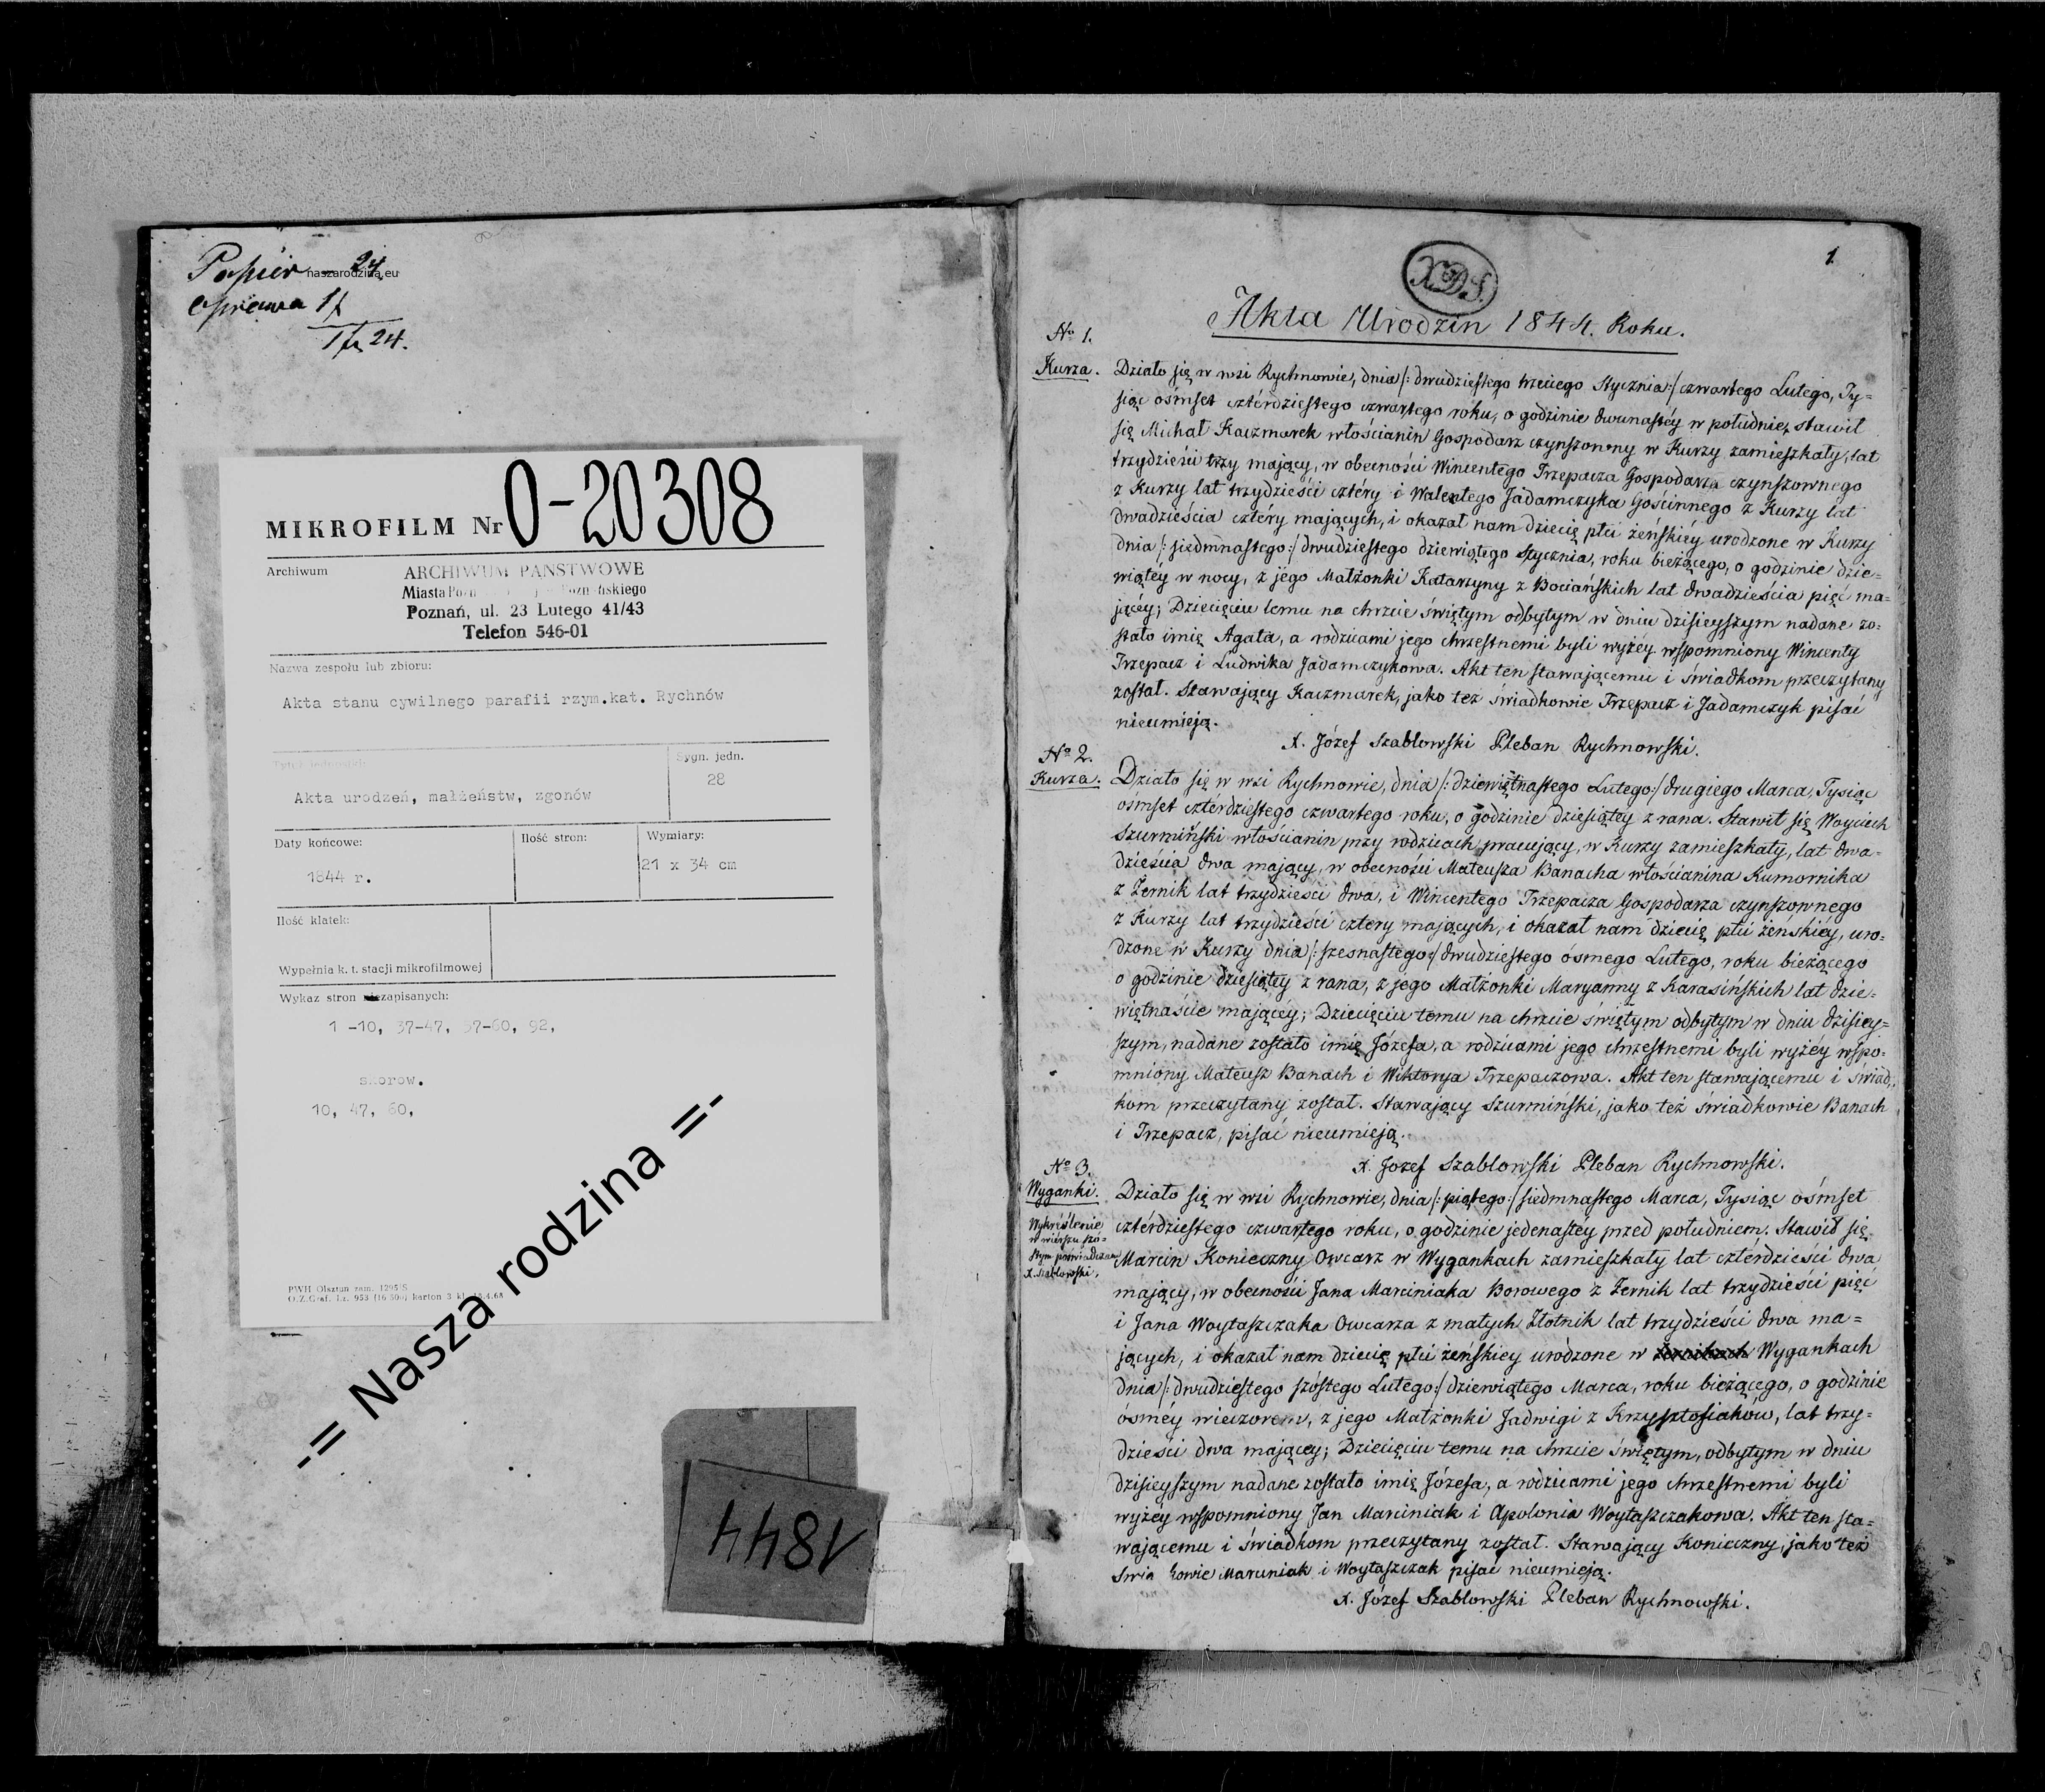 Papiér 24
naszarodzina.eu
oprawa 1f
1f 24.
MIKROFILM Nr O-20308
Archiwum
ARCHIWUM PAŃSTWOWE
Miasta
Poznań, ul. 23 Lutego 41/43
Telefon 546-01
Nazwa zespołu lub zbioru:
Akta stanu cywilnego parafii rzym.kat. Rychnów
Sygn. jedn.
28
Akta urodzeń, małżeństw, zgonów
Daty końcowe:
Ilość stron:
Wymiary:
1844 r.
21 x 34 cm
Ilość klatek:
Wypełnia k. t. stacji mikrofilmowej
Wykaz stron zapisanych:
1 -10, 37-47, 57-60, 92,
skorow.
10, 47, 60,
PWH Olsztyn zam. 1295/S
-= Nasza rodzina =-
1844
1
X.D.S.
Akta Urodzin 1844. Roku.
No 1.
Kurza.
Działo się w wsi Rychnowie, dnia /: dwudziestego trzeciego Stycznia:/ czwartego Lutego, Ty=
siąc ośmset cztérdziestego czwartego roku, o godzinie dwunastéy w południe, stawił
się Michał Kaczmarek włościanin Gospodarz czynszowny w Kurzy zamieszkały, lat
trzydzieści trzy mający, w obecności Wincentego Trzepacza Gospodarza czynszownego
z Kurzy lat trzydzieści cztéry i Walentego Jadamczyka Gościnnego z Kurzy lat
dwadzieścia cztéry mających, i okazał nam dziecię płci żeńskiéy urodzone w Kurzy
dnia /: siedmnastego:/ dwudziestego dziewiątego Stycznia, roku bieżącego, o godzinie dzie=
wiątéy w nocy, z jego Małżonki Katarzyny z Bociańskich lat dwadzieścia pięć ma=
jącéy; Dziecięciu temu na chrzcie świętym odbytym w dniu dzisieyszym nadane zo=
stało imię Agata, a rodzicami jego chrzestnemi byli wyżéy wspomniony Wincenty
Trzepacz i Ludwika Jadamczykowa. Akt ten stawającemu i świadkom przeczytany
został. Stawający Kaczmarek, jako też świadkowie Trzepacz i Jadamczyk pisać
nieumieją.
X. Józef Szablowski Pleban Rychnowski.
No 2.
Kurza.
Działo się w wsi Rychnowie, dnia /: dziewiętnastego Lutego:/ drugiego Marca, Tysiąc
ośmset cztérdziestego czwartego roku, o godzinie dziesiątéy z rana. Stawił się Woyciech
Szurmiński włościanin przy rodzicach pracujący, w Kurzy zamieszkały, lat dwa=
dzieścia dwa mający, w obecności Mateusza Banacha włościanina Kumornika
z Żernik lat trzydzieści dwa, i Wincentego Trzepacza Gospodarza czynszownego
z Kurzy lat trzydzieści cztery mających, i okazał nam dziecię płci żeńskiéy, uro=
dzone w Kurzy dnia /: szesnastego:/ dwudziestego ósmego Lutego, roku bieżącego
o godzinie dziesiątey z rana, z jego Małżonki Maryanny z Karasińskich lat dzie=
więtnaście mającéy; Dziecięciu temu na chrzcie świętym odbytym w dniu dzisiey=
szym, nadane zostało imię Józefa, a rodzicami jego chrzestnemi byli wyżéy wspo=
mniony Mateusz Banach i Wiktorya Trzepaczowa. Akt ten stawającemu i świad,
kom przeczytany został. Stawający Szurmiński, jako też świadkowie Banach
i Trzepacz, pisać nieumieją.
X. Jozef Szablowski Pleban Rychnowski.
No 3.
Wyganki.
Wykréślenie
w wierszu szó=
stym poświadczam
X. Szablowski,
Działo się w wsi Rychnowie, dnia /: piątego:/ siedmnastego Marca, Tysiąc ośmset
cztérdziestego czwartego roku, o godzinie jedenastéy przed południem. Stawił się
Marcin Konieczny Owcarz w Wygankach zamieszkały lat czterdzieści dwa
mający, w obecności Jana Marciniaka Borowego z Żernik lat trzydzieści pięć
i Jana Woytaszczaka Owcarza z małych Złotnik lat trzydzieści dwa ma=
jących, i okazał nam dziecię płci żeńskiey urodzone w Wygankach
dnia /: dwudziestego szóstego Lutego:/ dziewiątego Marca, roku bieżącego, o godzinie
ósméy wieczorem, z jego Małżonki Jadwigi z Krzysztosiaków, lat trzy=
dzieści dwa mającey; Dziecięciu temu na chrzcie świętym, odbytym w dniu
dzisieyszym nadane zostało imię Józefa, a rodzicami jego chrzestnemi byli
wyżey wspomniony Jan Marciniak i Apolonia Woytaszczakowa. Akt ten sta=
wającemu i świadkom przeczytany został. Stawający Konieczny, jako też
świadkowie Marciniak i Woytaszczak pisać nieumieją.
X. Józef Szablowski Pleban Rychnowski.